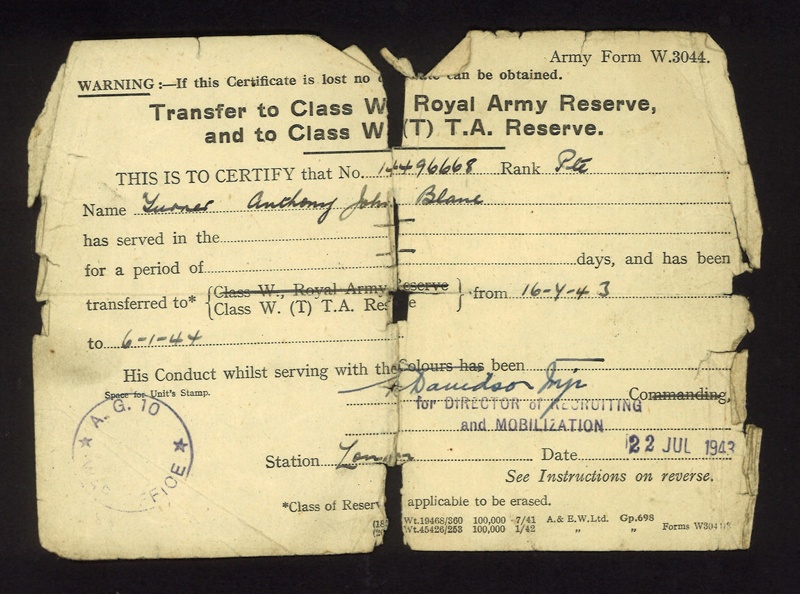 Army Form W.3044.
WARNING :—If this Certificate is lost no can be obtained.
Transfer to Class W Royal Army Reserve,
and to Class W (T) T.A. Reserve.
THIS IS TO CERTIFY that No. 14496668 Rank Pte
Name Turner Anthony John Blane
has served in the
for a period of days, and has been
transferred to* {Class W., Royal Army Reserve
Class W. (T) T.A. Rese e} from 16-7-43
to 6-1-44
His Conduct whilst serving with the Colours has been
Davidson Mjr Commanding,
Space for Unit's Stamp.
for DIRECTOR of RECRUITING
and MOBILIZATION
A.G. 10
OFFICE
Station London Date 22 JUL 1943
See Instructions on reverse.
*Class of Reserv applicable to be erased.
Wt.19468/360 100,000 7/41 A.& E.W.Ltd. Gp.698
Wt.45426/253 100,000 1/42 " " Forms